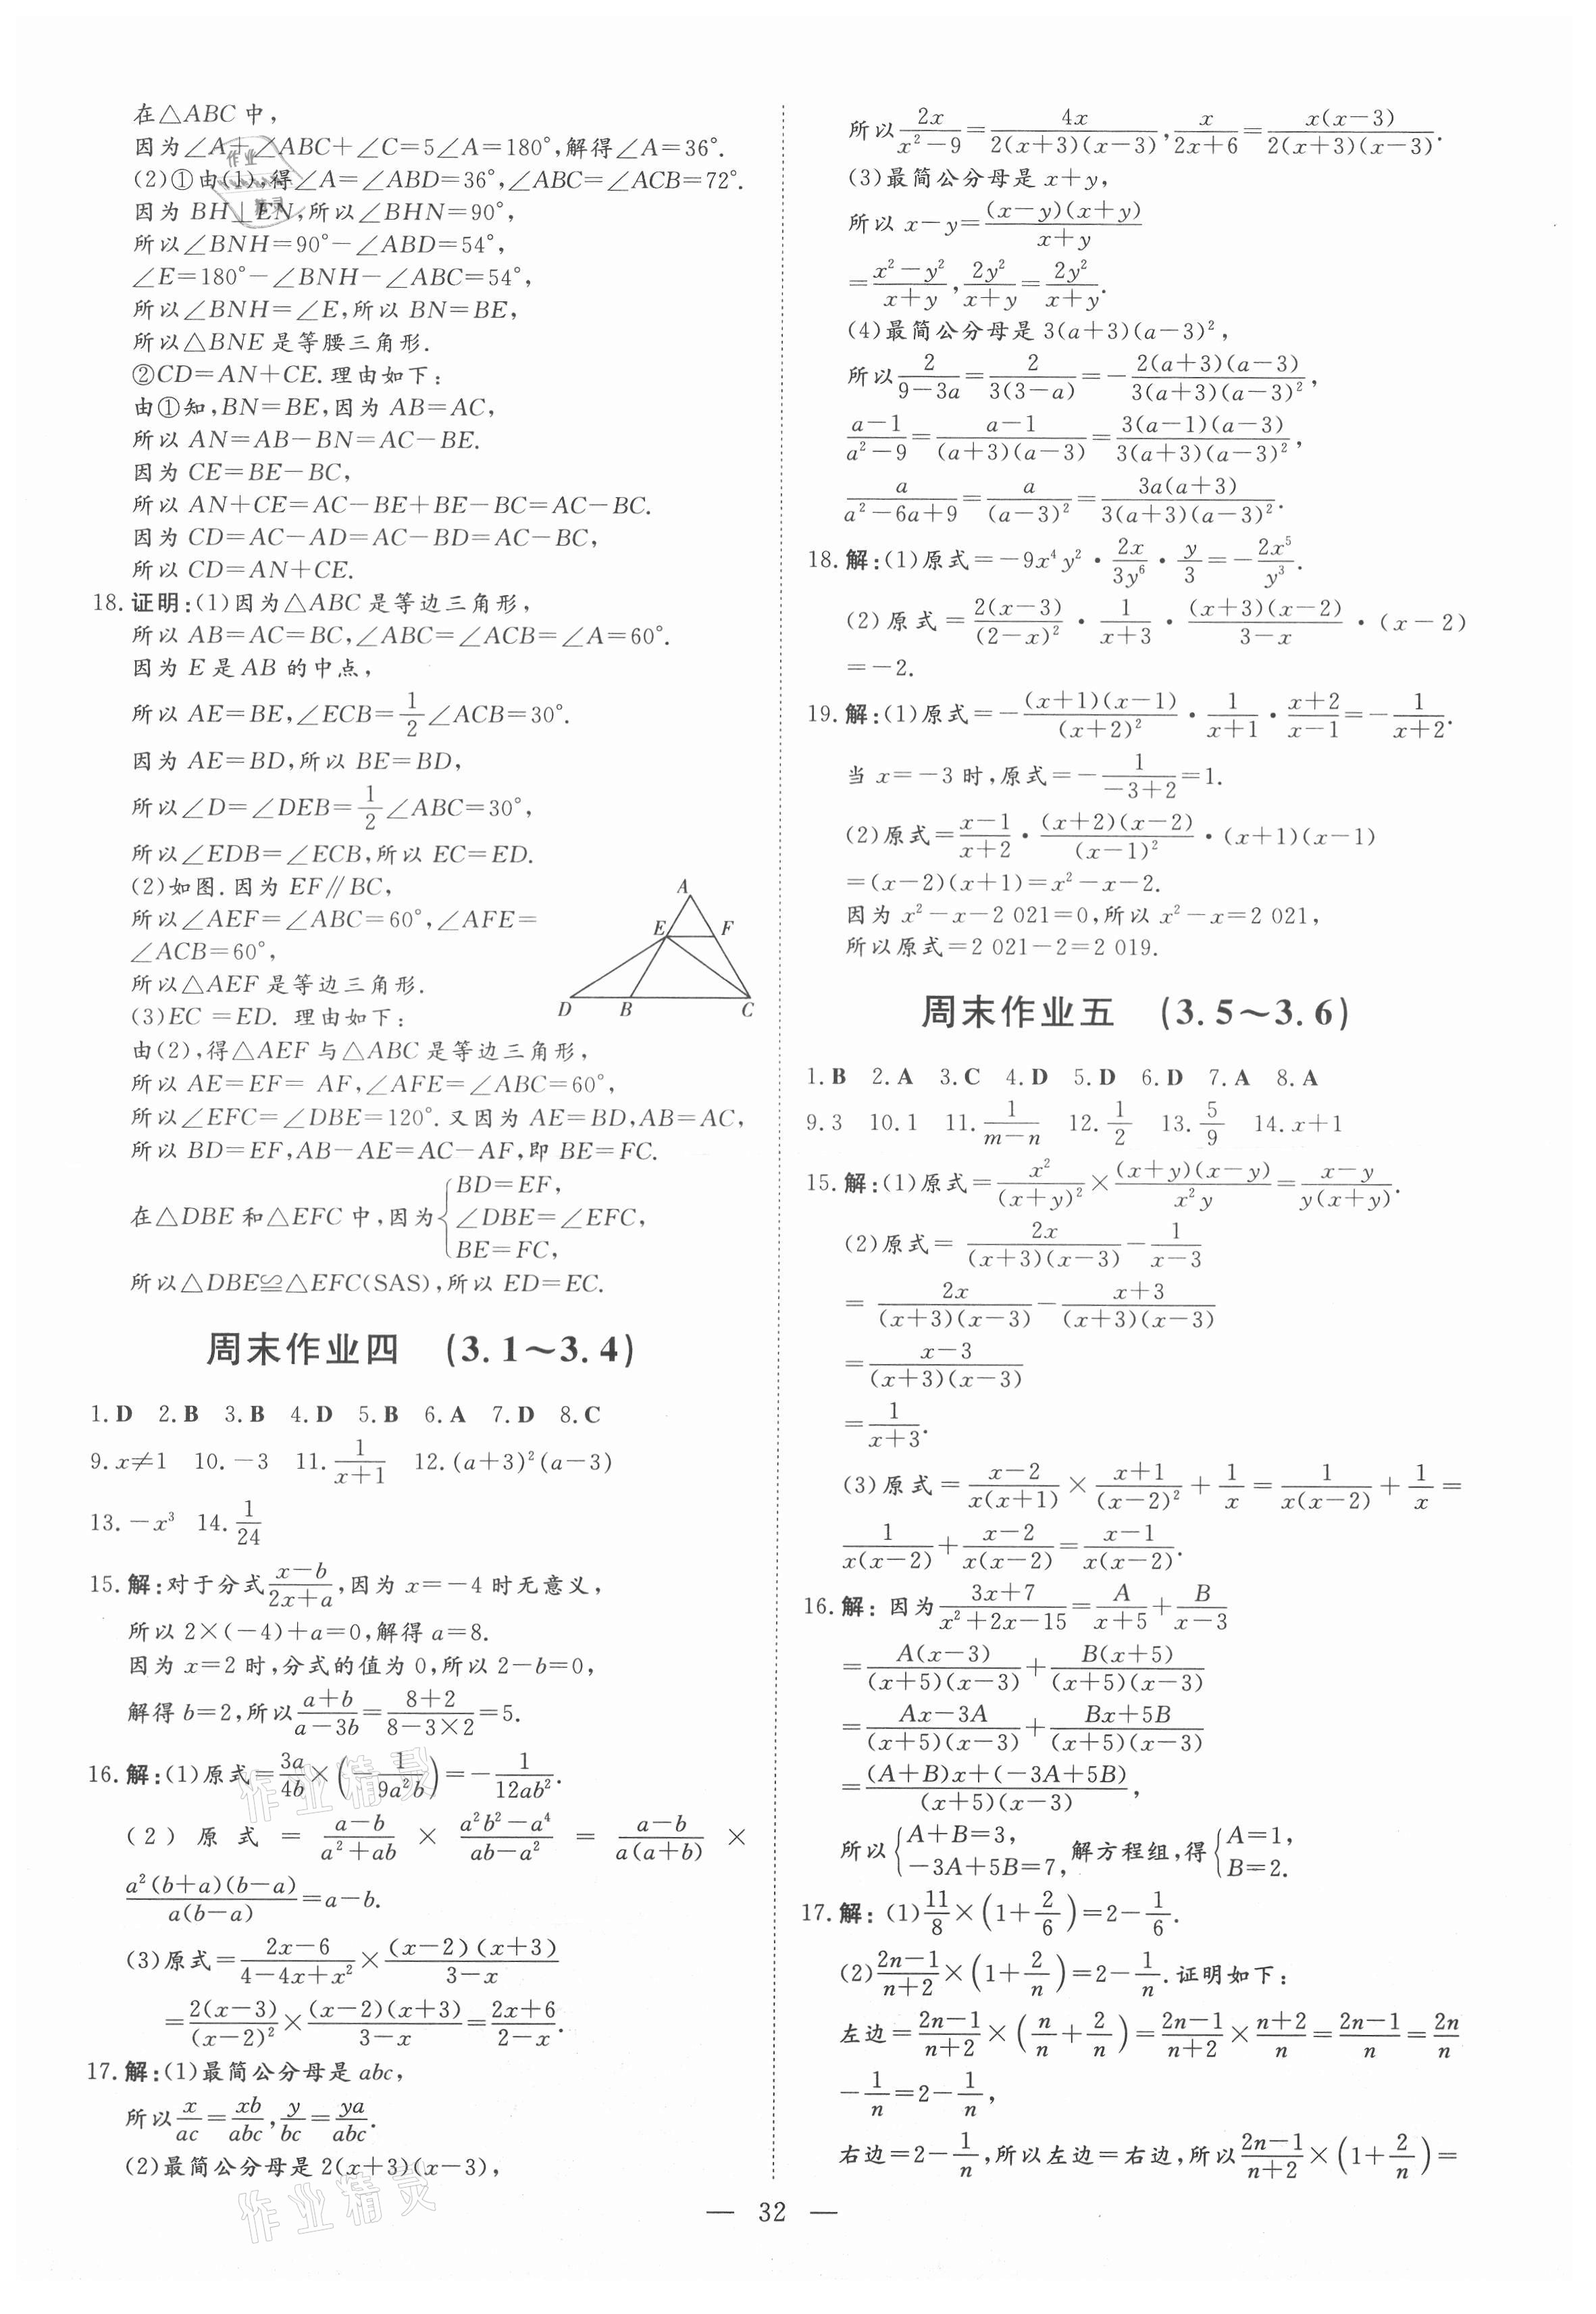 在△ABC中,
因为∠A+∠ABC+∠C=5∠A=180°,解得∠A=36°.
(2)①由(1),得∠A=∠ABD=36°,∠ABC=∠ACB=72°.
因为 BH⊥EN,所以∠BHN=90°,
所以∠BNH=90°-∠ABD=54°,
∠E=180°-∠BNH-∠ABC=54°,
所以∠BNH=∠E,所以 BN=BE,
所以△BNE 是等腰三角形.
②CD=AN+CE.理由如下:
由①知,BN=BE,因为 AB=AC,
所以 AN=AB-BN=AC-BE.
因为 CE=BE-BC,
所以 AN+CE=AC-BE+BE-BC=AC-BC.
因为 CD=AC-AD=AC-BD=AC-BC,
所以 CD=AN+CE.
18.证明:(1)因为△ABC 是等边三角形,
所以 AB=AC=BC,∠ABC=∠ACB=∠A=60°.
因为 E 是 AB 的中点,
所以 AE=BE,∠ECB=1/2∠ACB=30°.
因为 AE=BD,所以 BE=BD,
所以∠D=∠DEB=1/2∠ABC=30°,
所以∠EDB=∠ECB,所以 EC=ED.
(2)如图.因为 EF∥BC,
所以∠AEF=∠ABC=60°,∠AFE=
∠ACB=60°,
所以△AEF 是等边三角形.
A
E F
D B C
(3)EC =ED. 理由如下:
由(2),得△AEF 与△ABC 是等边三角形,
所以 AE=EF= AF,∠AFE=∠ABC=60°,
所以∠EFC=∠DBE=120°.又因为 AE=BD,AB=AC,
所以 BD=EF,AB-AE=AC-AF,即 BE=FC.
在△DBE 和△EFC 中,因为{BD=EF,
∠DBE=∠EFC,
BE=FC,
所以△DBE≌△EFC(SAS),所以 ED=EC.
周末作业四 (3.1~3.4)
1.D 2.B 3.B 4.D 5.B 6.A 7.D 8.C
9.x≠1 10.-3 11.1/(x+1) 12.(a+3)²(a-3)
13.-x³ 14.1/24
15.解:对于分式(x-b)/(2x+a),因为 x=-4 时无意义,
所以 2×(-4)+a=0,解得 a=8.
因为 x=2 时,分式的值为 0,所以 2-b=0,
解得 b=2,所以(a+b)/(a-3b)=(8+2)/(8-3×2)=5.
16.解:(1)原式=3a/4b×(-1/(9a²b))=-1/(12ab²).
(2)原式=(a-b)/(a²+ab)×(a²b²-a⁴)/(ab-a²)=(a-b)/(a(a+b))×
(a²(b+a)(b-a))/(a(b-a))=a-b.
(3)原式=(2x-6)/(4-4x+x²)×((x-2)(x+3))/(3-x)
=(2(x-3))/((x-2)²)×((x-2)(x+3))/(3-x)=(2x+6)/(2-x).
17.解:(1)最简公分母是 abc,
所以x/ac=xb/abc,y/bc=ya/abc.
(2)最简公分母是 2(x+3)(x-3),
所以2x/(x²-9)=4x/(2(x+3)(x-3)),x/(2x+6)=(x(x-3))/(2(x+3)(x-3)).
(3)最简公分母是 x+y,
所以 x-y=((x-y)(x+y))/(x+y)
=(x²-y²)/(x+y),2y²/(x+y)=2y²/(x+y).
(4)最简公分母是 3(a+3)(a-3)²,
所以2/(9-3a)=2/(3(3-a))=-(2(a+3)(a-3))/(3(a+3)(a-3)²),
(a-1)/(a²-9)=(a-1)/((a+3)(a-3))=(3(a-1)(a-3))/(3(a+3)(a-3)²),
a/(a²-6a+9)=a/((a-3)²)=(3a(a+3))/(3(a+3)(a-3)²).
18.解:(1)原式=-9x⁴y²·2x/3y⁶·y/3=-2x⁵/y³.
(2)原式=(2(x-3))/((2-x)²)·1/(x+3)·((x+3)(x-2))/(3-x)·(x-2)
=-2.
19.解:(1)原式=-((x+1)(x-1))/((x+2)²)·1/(x+1)·(x+2)/(x-1)=-1/(x+2).
当 x=-3 时,原式=-1/(-3+2)=1.
(2)原式=(x-1)/(x+2)·((x+2)(x-2))/((x-1)²)·(x+1)(x-1)
=(x-2)(x+1)=x²-x-2.
因为 x²-x-2 021=0,所以 x²-x=2 021,
所以原式=2 021-2=2 019.
周末作业五 (3.5~3.6)
1.B 2.A 3.C 4.D 5.D 6.D 7.A 8.A
9.3 10.1 11.1/(m-n) 12.1/2 13.5/9 14.x+1
15.解:(1)原式=x²/((x+y)²)×((x+y)(x-y))/(x²y)=(x-y)/(y(x+y)).
(2)原式=2x/((x+3)(x-3))-1/(x-3)
=2x/((x+3)(x-3))-(x+3)/((x+3)(x-3))
=(x-3)/((x+3)(x-3))
=1/(x+3).
(3)原式=(x-2)/(x(x+1))×(x+1)/((x-2)²)+1/x=1/(x(x-2))+1/x=
1/(x(x-2))+(x-2)/(x(x-2))=(x-1)/(x(x-2)).
16.解:因为(3x+7)/(x²+2x-15)=A/(x+5)+B/(x-3)
=(A(x-3))/((x+5)(x-3))+(B(x+5))/((x+5)(x-3))
=(Ax-3A)/((x+5)(x-3))+(Bx+5B)/((x+5)(x-3))
=((A+B)x+(-3A+5B))/((x+5)(x-3)),
所以{A+B=3, -3A+5B=7,解方程组,得{A=1, B=2.
17.解:(1)11/8×(1+2/6)=2-1/6.
(2)(2n-1)/(n+2)×(1+2/n)=2-1/n.证明如下:
左边=(2n-1)/(n+2)×(n/n+2/n)=(2n-1)/(n+2)×(n+2)/n=(2n-1)/n=2n/n
-1/n=2-1/n,
右边=2-1/n,所以左边=右边,所以(2n-1)/(n+2)×(1+2/n)=
— 32 —
作业精灵
作业精灵
作业精灵